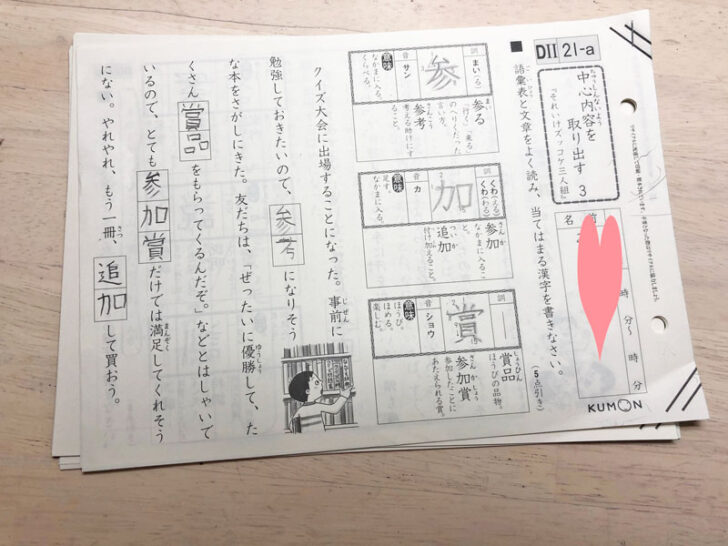 DII 21-a
ちゅうしんないよう
中心内容を
取り出す 3
『それいけズッコケ三人組』
■ 語彙表と文章をよく読み、当てはまる漢字を書きなさい。
(5点引き)
名前
時 分～ 時 分
KUMON
訓 まい(る)
音 サン
意味 なかまに入る。
くらべる。
参
参る
「行く」「来る」
のへりくだった
言い方。
参考
考える時にすること。
訓 くわ(える)
くわ(わる)
音 カ
意味 足す。
なかまに入る。
加
参加
なかまに入ること。
追加
付け加えること。
訓 ―
音 ショウ
意味 ほうび。
ほめる。
楽しむ。
賞
賞品
ほうびの品物。
参加賞
参加したことに
あたえられる賞。
クイズ大会に出場することになった。事前に
勉強しておきたいので、参考になりそう
な本をさがしにきた。友だちは、「ぜったいに優勝して、た
くさん賞品をもらってくるんだぞ。」などとはしゃいで
いるので、とても参加賞だけでは満足してくれそう
にない。やれやれ、もう一冊、追加して買おう。